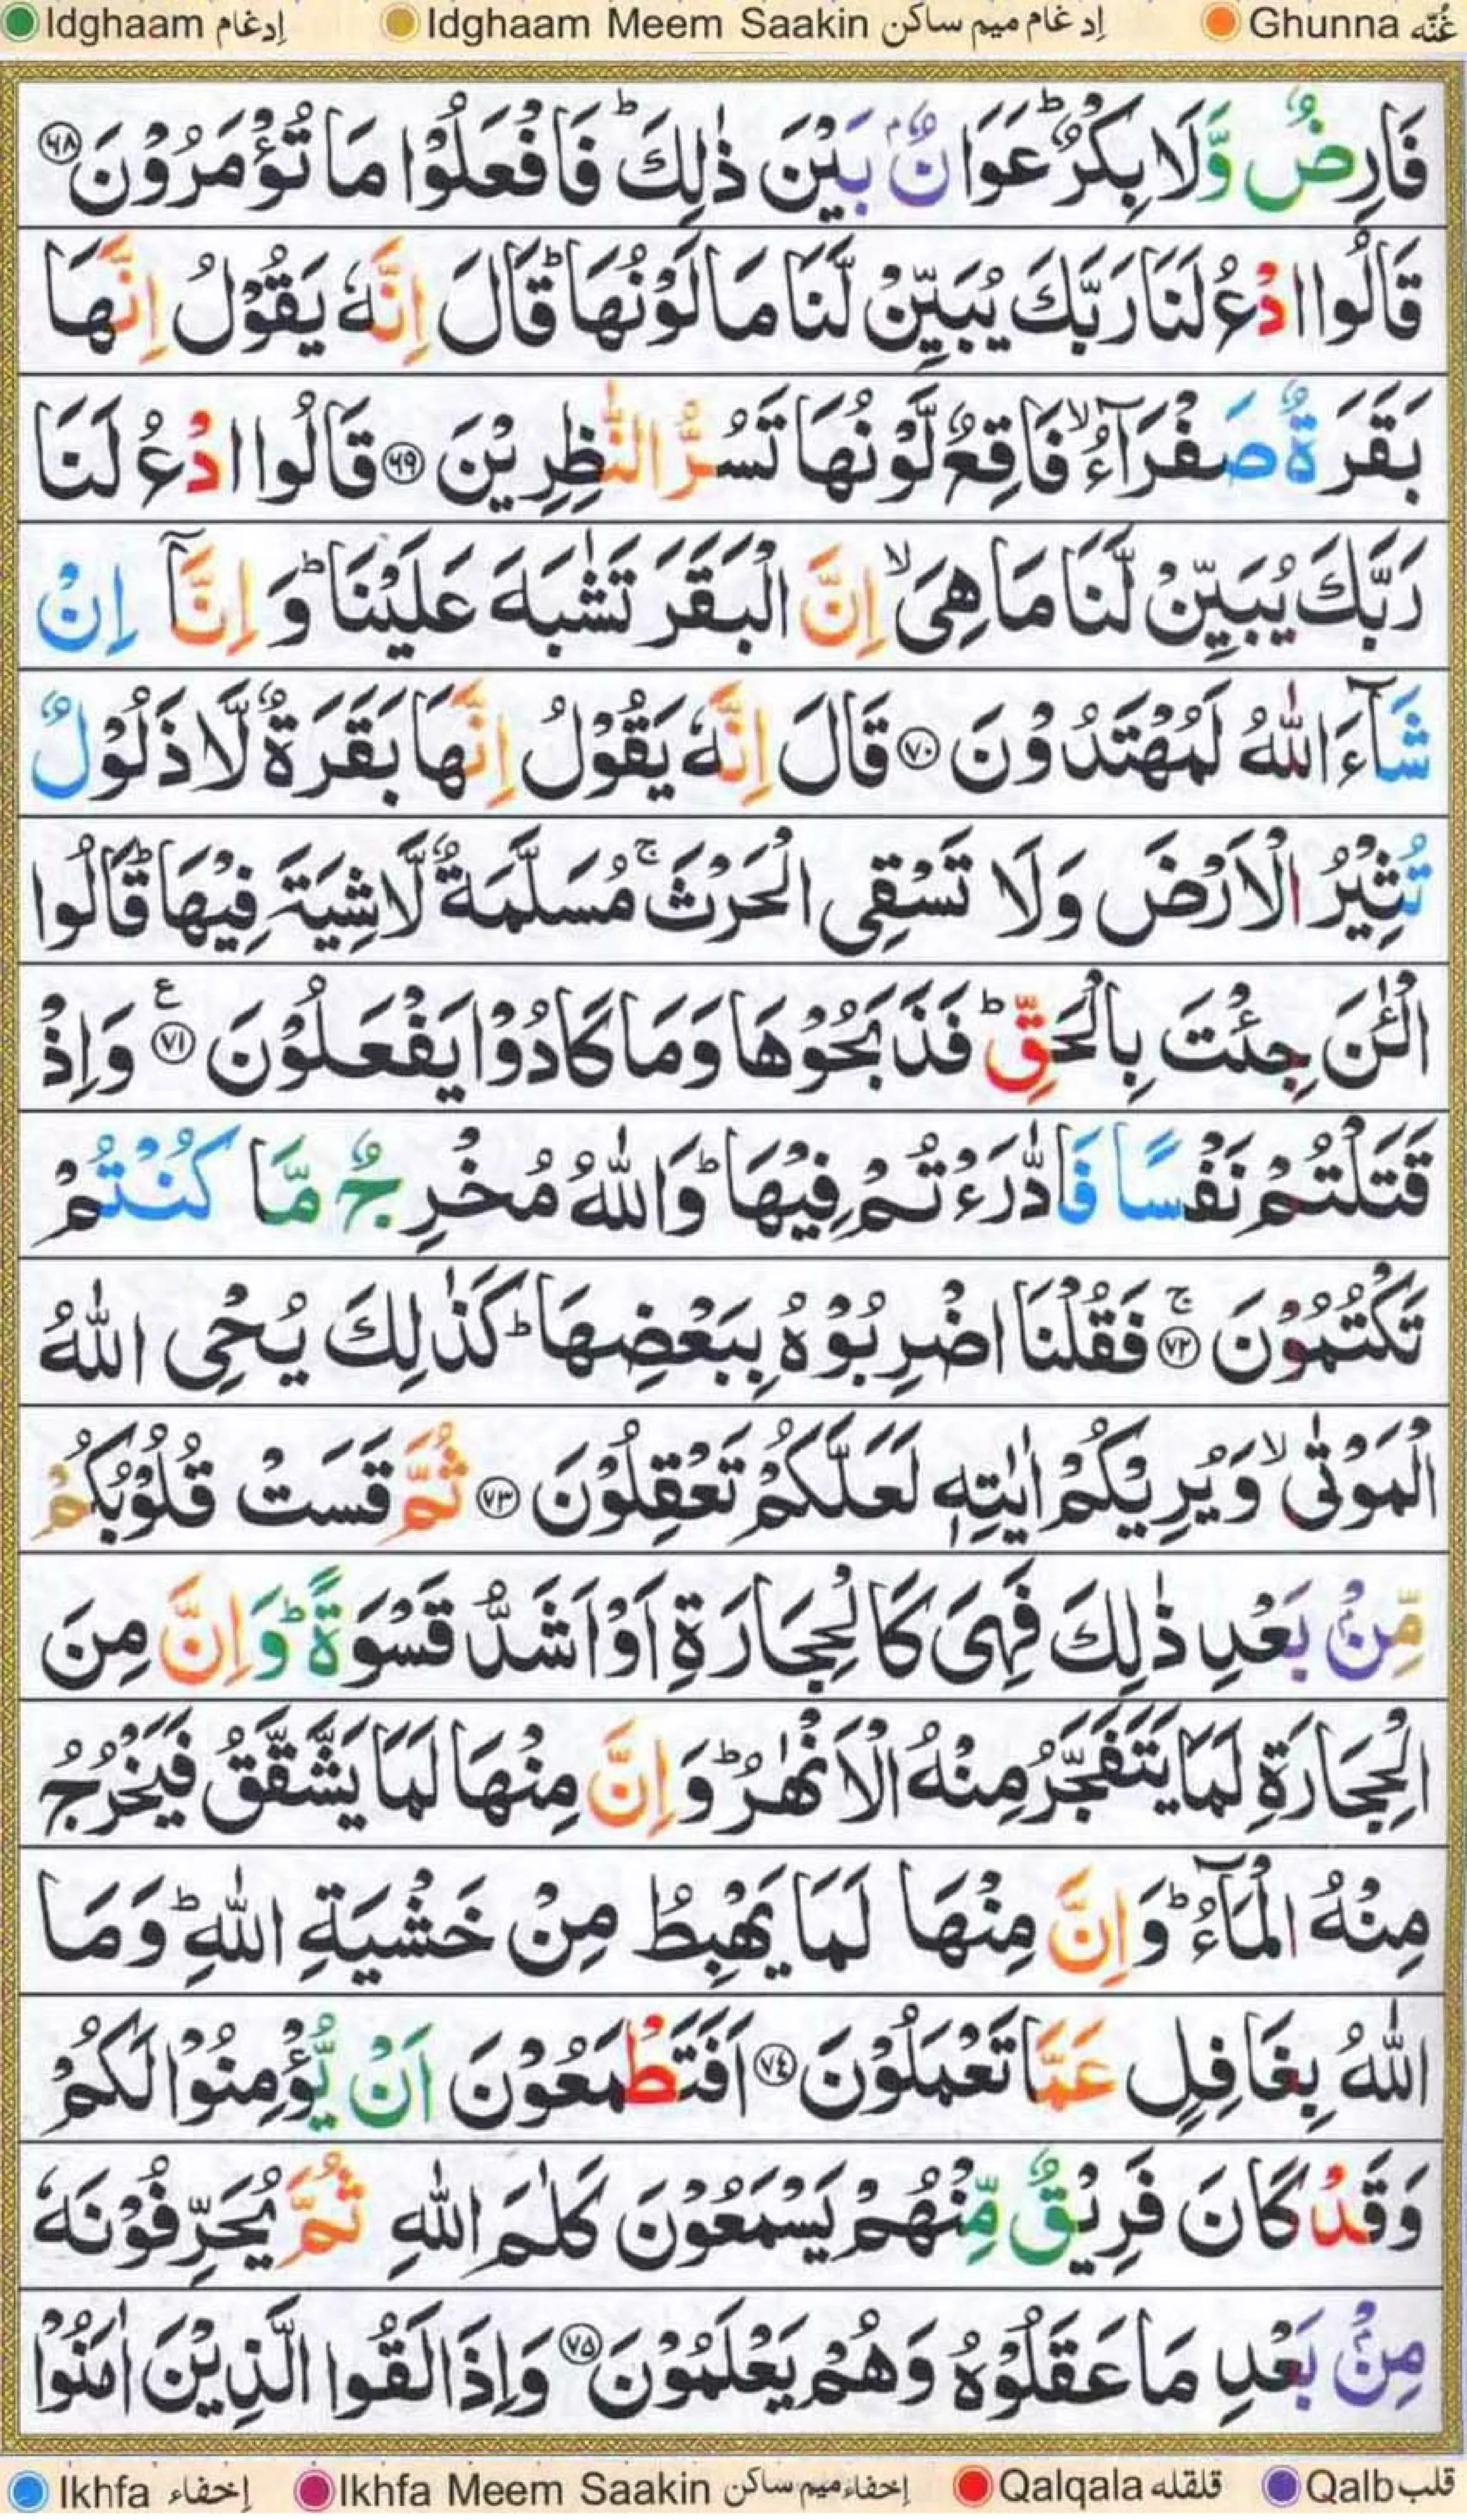 Idghaam إدغام Idghaam Meem Saakin إدغام ميم ساكن Ghunna غُنّه
فَارِضٌ وَّلَا بِكْرٌ ؕ عَوَانٌۢ بَيْنَ ذٰلِكَ ؕ فَافْعَلُوْا مَا تُؤْمَرُوْنَ ۶۸
قَالُوا ادْعُ لَنَا رَبَّكَ يُبَيِّنْ لَّنَا مَا لَوْنُهَا ؕ قَالَ اِنَّهٗ يَقُوْلُ اِنَّهَا
بَقَرَةٌ صَفْرَآءُ ۙ فَاقِعٌ لَّوْنُهَا تَسُرُّ النّٰظِرِيْنَ ۶۹ قَالُوا ادْعُ لَنَا
رَبَّكَ يُبَيِّنْ لَّنَا مَا هِيَ ۙ اِنَّ الْبَقَرَ تَشٰبَهَ عَلَيْنَا ؕ وَ اِنَّآ اِنْ
شَآءَ اللّٰهُ لَمُهْتَدُوْنَ ۷۰ قَالَ اِنَّهٗ يَقُوْلُ اِنَّهَا بَقَرَةٌ لَّا ذَلُوْلٌ
تُثِيْرُ الْاَرْضَ وَلَا تَسْقِى الْحَرْثَ ۚ مُسَلَّمَةٌ لَّاشِيَةَ فِيْهَا ؕ قَالُوا
الْـٰٔنَ جِئْتَ بِالْحَقِّ ؕ فَذَبَحُوْهَا وَمَا كَادُوْا يَفْعَلُوْنَ ۷۱ ع وَاِذْ
قَتَلْتُمْ نَفْسًا فَادّٰرَءْتُمْ فِيْهَا ؕ وَاللّٰهُ مُخْرِجٌ مَّا كُنْتُمْ
تَكْتُمُوْنَ ۚ ۷۲ فَقُلْنَا اضْرِبُوْهُ بِبَعْضِهَا ؕ كَذٰلِكَ يُحْىِ اللّٰهُ
الْمَوْتٰى ۙ وَيُرِيْكُمْ اٰيٰتِهٖ لَعَلَّكُمْ تَعْقِلُوْنَ ۷۳ ثُمَّ قَسَتْ قُلُوْبُكُمْ
مِّنْۢ بَعْدِ ذٰلِكَ فَهِىَ كَالْحِجَارَةِ اَوْ اَشَدُّ قَسْوَةً ؕ وَاِنَّ مِنَ
الْحِجَارَةِ لَمَا يَتَفَجَّرُ مِنْهُ الْاَنْهٰرُ ؕ وَاِنَّ مِنْهَا لَمَا يَشَّقَّقُ فَيَخْرُجُ
مِنْهُ الْمَآءُ ؕ وَاِنَّ مِنْهَا لَمَا يَهْبِطُ مِنْ خَشْيَةِ اللّٰهِ ؕ وَمَا
اللّٰهُ بِغَافِلٍ عَمَّا تَعْمَلُوْنَ ۷۴ اَفَتَطْمَعُوْنَ اَنْ يُّؤْمِنُوْا لَكُمْ
وَقَدْ كَانَ فَرِيْقٌ مِّنْهُمْ يَسْمَعُوْنَ كَلٰمَ اللّٰهِ ثُمَّ يُحَرِّفُوْنَهٗ
مِنْۢ بَعْدِ مَا عَقَلُوْهُ وَهُمْ يَعْلَمُوْنَ ۷۵ وَاِذَا لَقُوا الَّذِيْنَ اٰمَنُوْا
Ikhfa إخفاء Ikhfa Meem Saakin إخفاء ميم ساكن Qalqala قلقله Qalb قلب